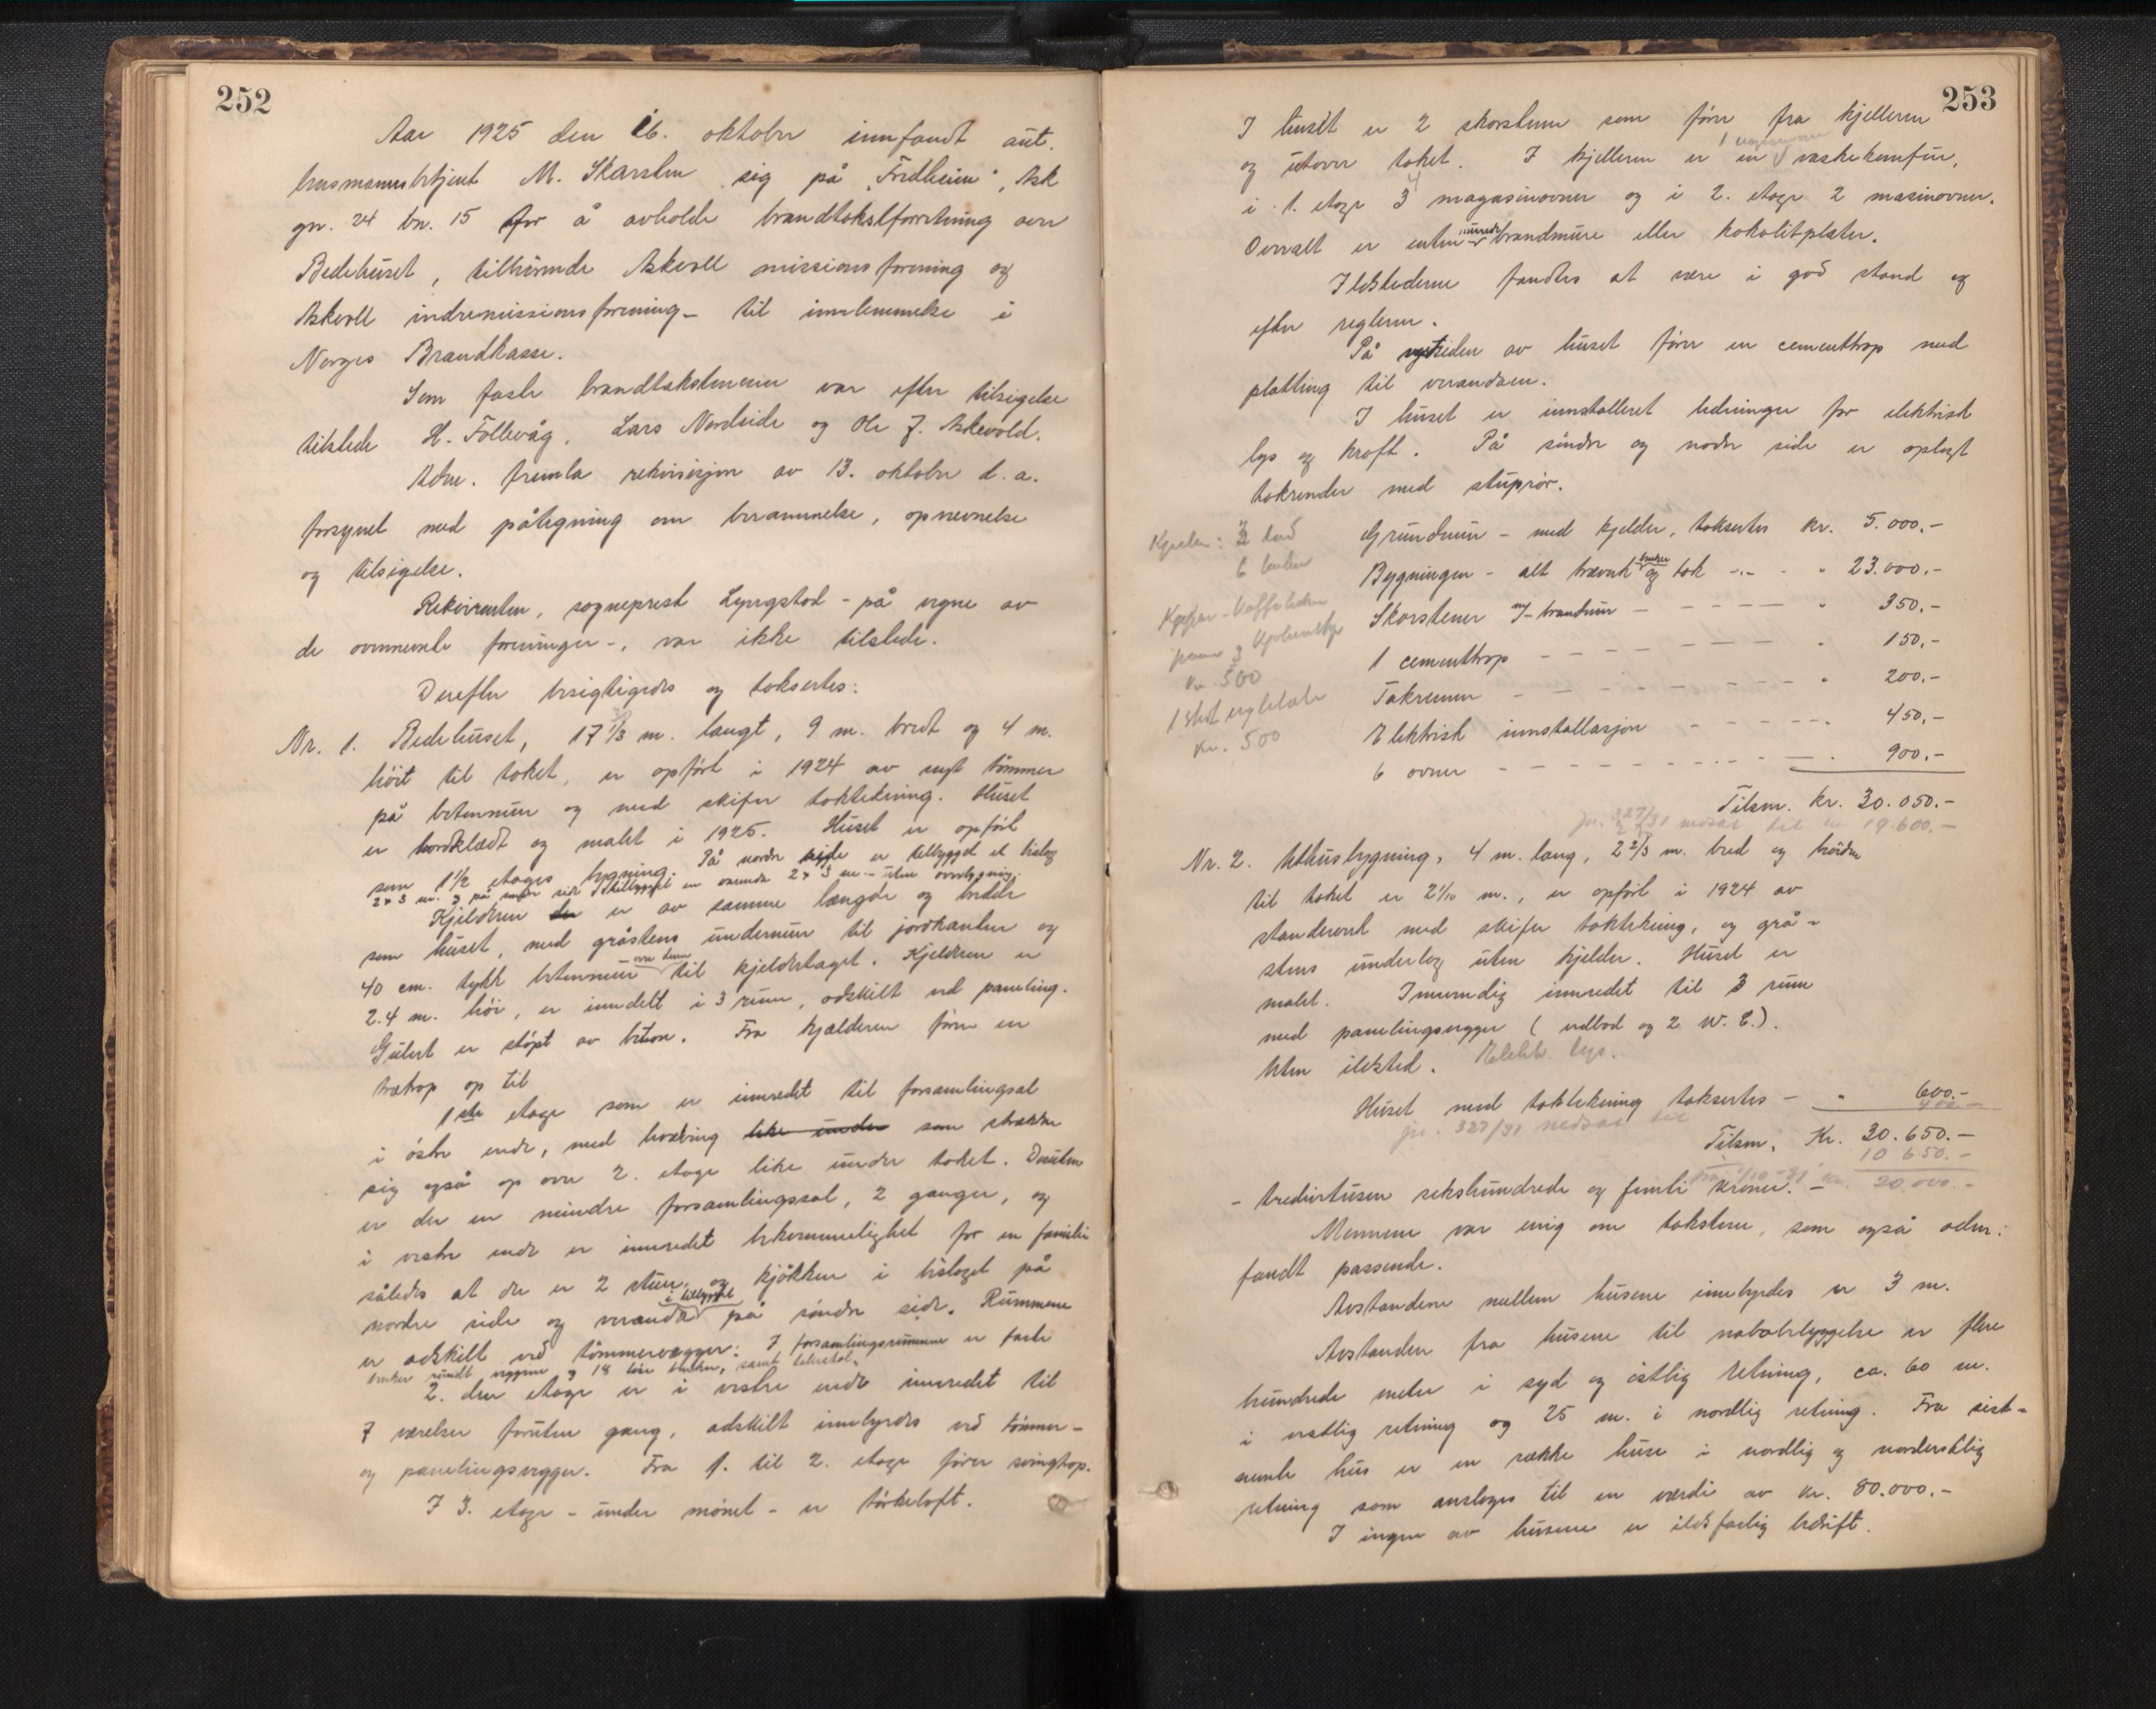 252
Aar 1925 den 16. oktober innfandt aut.
lensmannsbetjent M. Skarstein sig på "Fredheim", Ask
gn. 24 bn. 15 for å avholde brandtakstforretning over
Bedehuset, tilhörende Askvoll missionsforening og
Askvoll indremissionsforening - til innlemmelse i
Norges Brandkasse.
Som faste brandtakstmenn var efter tilsigelse
tilstede H. Follevåg, Lars Nordeide og Ole J. Askvold.
Adm. fremla rekvisisjon av 13. oktober d. a.
forsynet med påtegning om berammelse, opnevnelse
og tilsigelse.
Rekvirenten, sogneprest Lyngstad - på vegne av
de ovennevnte foreninger -, var ikke tilstede.
Derefter besigtigedes og taksertes:
Nr. 1. Bedehuset, 17 1/3 m. langt, 9 m. bredt og 4 m.
höit til taket, er opført i 1924 av nyt tömmer
på betonmur og med skifer taktekning. Huset
er bordklædt og malet i 1925. Huset er opført
som 1 1/2 etages bygning. På nordre side er tilbygget et bislag
2 x 3 m. og på söndre side tilbygget en veranda 2 x 3 m. - uten overbygning.
Kjelderen er av samme længde og bredde
som huset, med gråstens undermur til jordkanten og
40 cm. tykk betonmur over denne til kjeldertaget. Kjelderen er
2.4 m. höi, er inndelt i 3 rum, adskilt ved paneling.
Gulvet er støpt av beton. Fra kjælderen fører en
trætrap op til
1ste etage som er innredet til forsamlingsal
i östre ende, med hvælving like under som strækker
sig også op over 2. etage like under taket. Desuten
er der en mindre forsamlingssal, 2 ganger, og
i vestre ende er innredet bekvemmelighet for en familie
således at der er 2 stuer, og kjökken i bislaget på
nordre side og veranda i tilbygget på söndre side. Rummene
er adskilt ved tömmervegger. I forsamlingsrummene er faste
benker rundt veggene og 18 löse benker, samt talerstol.
2. den etage er i vestre ende innredet til
7 værelser foruten gang, adskilt innbyrdes ved tömmer-
og panelingsvegger. Fra 1. til 2. etage fører svingtrap.
I 3. etage - under mönet - er törkeloft.
253
I huset er 2 skorstener som fører fra kjelleren
og utover taket. I kjelleren er en vaskekomfur,
i 1. etage 3 4 magasinovner og i 2. etage 2 masinovner.
Overalt er enten murede brandmure eller kokolitplater.
Ildstederne fandtes at være i god stand og
efter reglerne.
På vestsiden av huset fører en cementtrap med
platting til verandaen.
I huset er innstalleret ledninger for elektrisk
lys og kraft. På söndre og nordre side er oplagt
takrender med stuprör.
Grundmur - med kjelder, taksertes kr. 5.000.-
Bygningen - alt træverk benker og tak -.- - " 23.000.-
Skorstener m/ brandmur - - - - - " 350.-
1 cementtrap - - - - - - - " 150.-
Takrenner - - - - - - - - " 200.-
Elektrisk innstallasjon - - - - - 450.-
6 ovner - - - - - - - - - 900.-
Kr. 500
1 skol
Kr. 500
Tilsm. kr. 30.050.-
jn. 327/31 nedsat til kr. 19.600.-
Nr. 2. Uthusbygning, 4 m. lang, 2 2/3 m. bred og höiden
til taket er 2 1/10 m., er opført i 1924 av
standerverk med skifer taktekning, og grå-
stens underlag uten kjelder. Huset er
malet. Innvendig innredet til 3 rum
med panelingsvegger (vedbod og 2 W. C.).
Uten ildsted. Elektr. lys.
Huset med taktekning taksertes - " 600.-
jn. 327/31 nedsat til 400.-
Tilsm. Kr. 30.650.-
10 650.-
- tredivetusen sekshundrede og femti kroner. - 20 000.-
Mennene var enig om takstene, som også adm.
fandt passende.
Avstandene mellem husene innbyrdes er 3 m.
Avstanden fra husene til nabobebyggelse er flere
hundrede meter i syd og östlig retning, ca. 60 m.
i vestlig retning og 25 m. i nordlig retning. Fra sist-
nevnte hus er en række huse i nordlig og nordvestlig
retning som ansloges til en værdi av kr. 80.000.-
I ingen av husene er ildsfarlig bedrift.